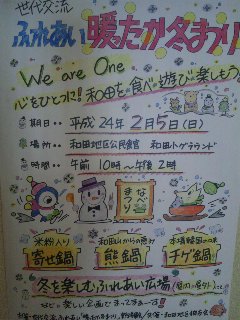 世代交流
ふれあい暖たか冬まつり
We are One
心をひとつに!和田を食べ遊び楽しもう
期日・・平成24年2月5日(日)
場所・・和田地区公民館 和田
時間・・午前10時〜午後2時
なべまつり
米粉入り 寄せ鍋
和田山からの恵み 熊鍋
本場韓国の味 チゲ鍋
冬を楽しむふれあい広場
楽しい企画でまってるまーす!